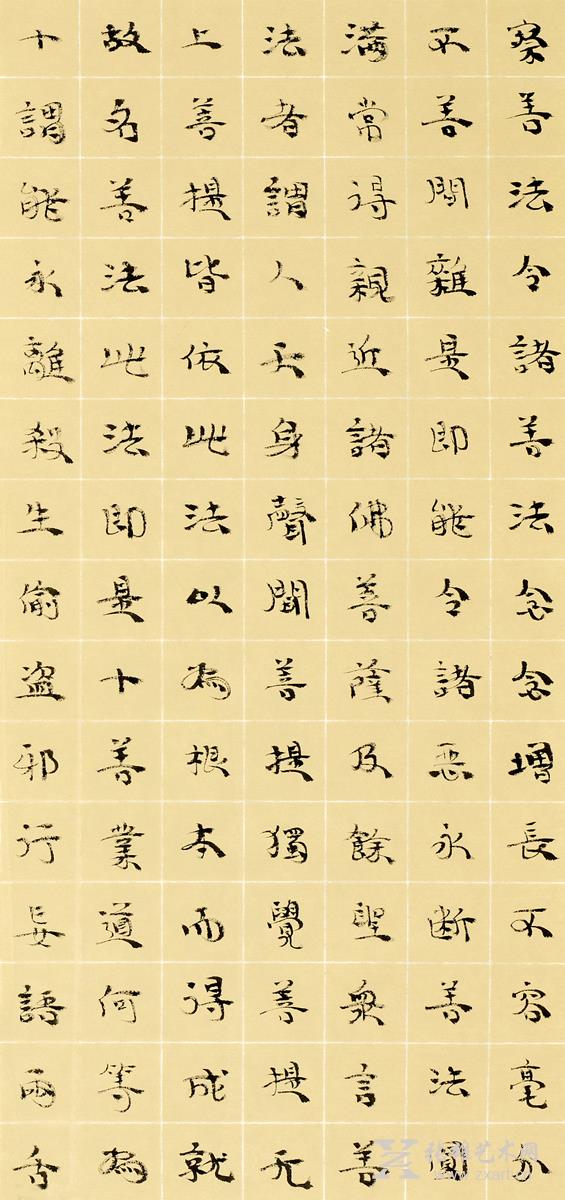 察善法令諸善法念念增長不容毫分
不善間雜是即能令諸惡永断善法圓
滿常得親近諸佛菩薩及餘聖衆言善
法者謂人天身聲聞菩提獨覺菩提无
上菩提皆依此法以為根本而得成就
故名善法此法即是十善業道何等為
十謂能永離殺生偷盜邪行妄語兩舌
张雄艺术网
www.zxart.cn